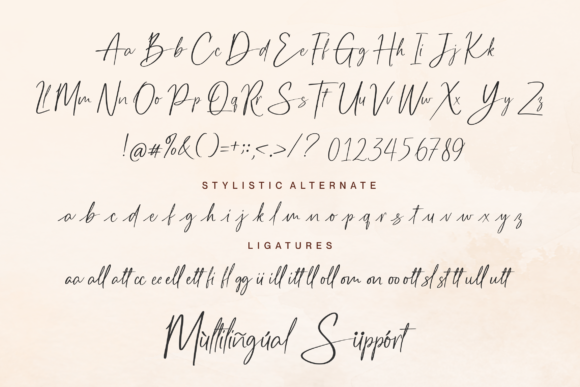 Aa Bb Cc Dd Ee Ff Gg Hh Ii Jj Kk
Ll Mm Nn Oo Pp Qq Rr Ss Tt Uu Vv Ww Xx Yy Zz
!@#%&()=+;:,<.>/? 0123456789
STYLISTIC ALTERNATE
a b c d e f g h i j k l m n o p q r s t u v w x y z
LIGATURES
aa all att cc ee ell ett fi fl gg ii ill itt ll oll om on oo ott sl st tt ull utt
Mùltilíñgúal Süppórt